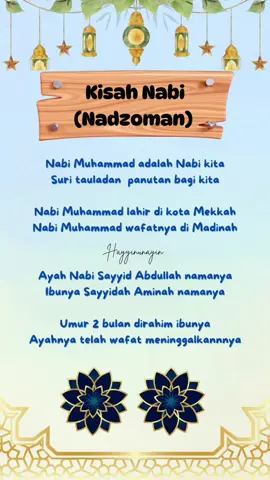 Kisah Nabi
(Nadzoman)
Nabi Muhammad adalah Nabi kita
Suri tauladan panutan bagi kita
Nabi Muhammad lahir di kota Mekkah
Nabi Muhammad wafatnya di Madinah
Hayyinunayin
Ayah Nabi Sayyid Abdullah namanya
Ibunya Sayyidah Aminah namanya
Umur 2 bulan dirahim ibunya
Ayahnya telah wafat meninggalkannnya